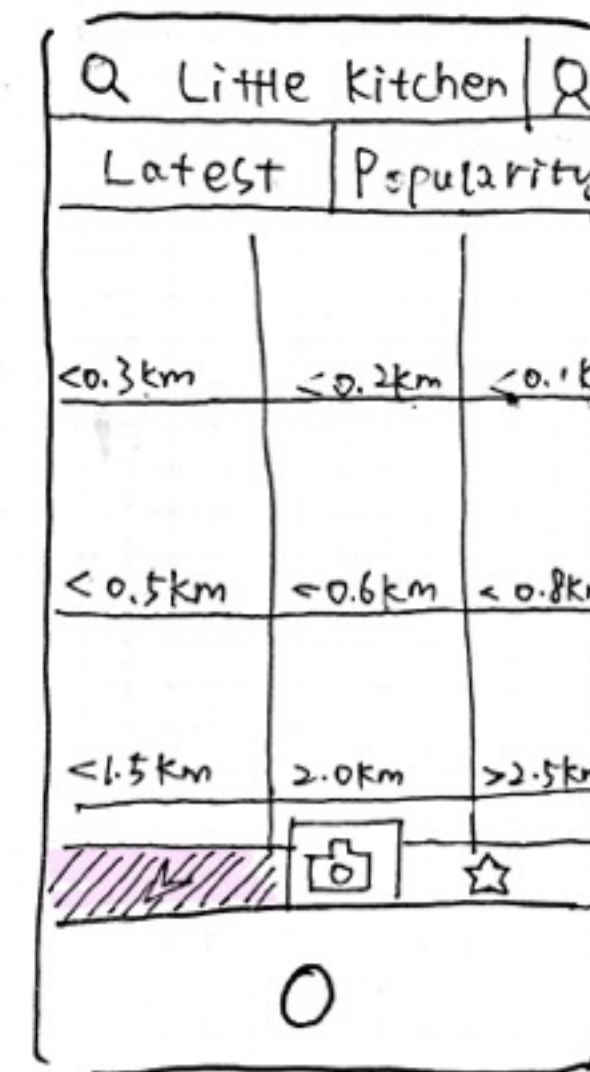 Little Kitchen
Latest Popularity
<0.3km <0.2km <0.1k
<0.5km <0.6km <0.8km
<1.5km 2.0km >2.5km